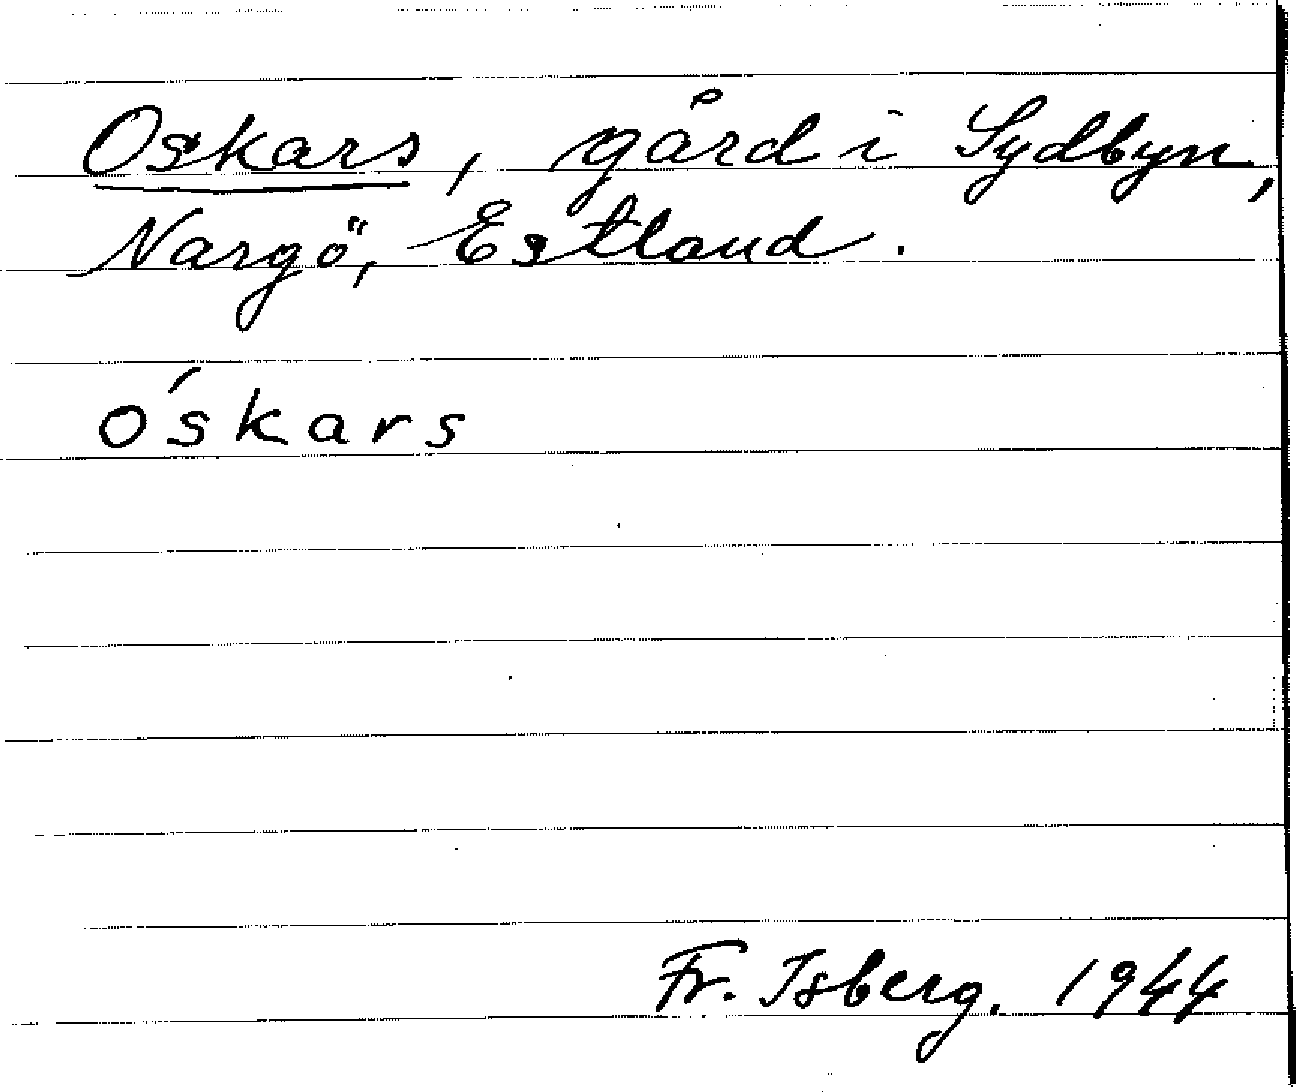 Oskars, gård i Sydbyn,
Nargö, Estland.
óskars
Fr. Isberg. 1944